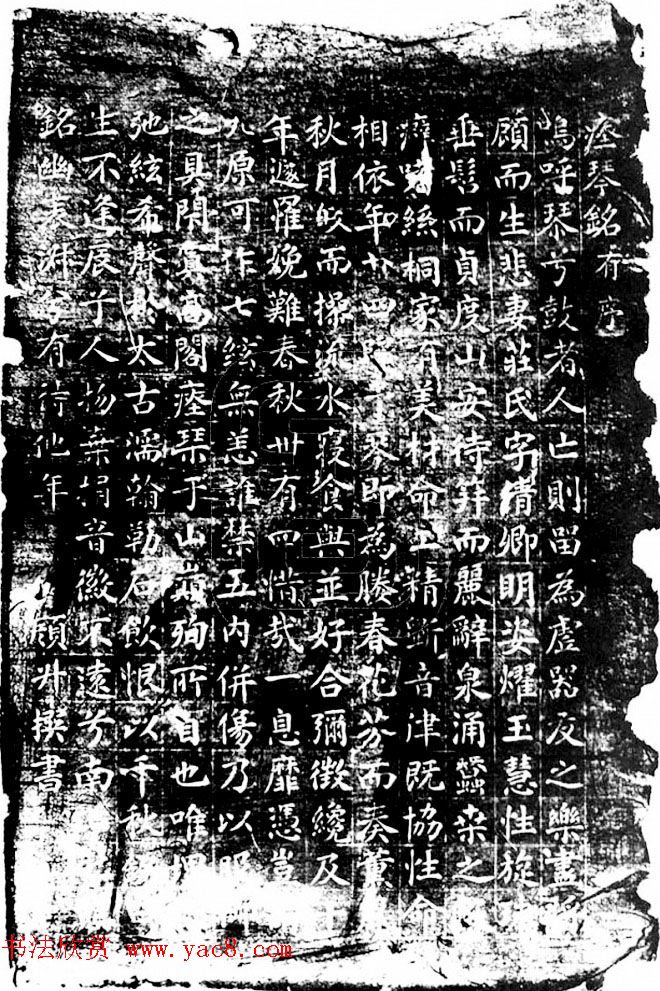 瘞琴銘有序
嗚呼琴兮鼓者人亡則留為虛器反之樂盡
顧而生悲妻莊氏字清卿明姿燿玉慧性旋
垂髫而貞度山安待笄而麗辭泉涌蠶桑之
絲桐家有美材命工精斲音津既協性命
相依年廿四琴即為媵春花芬而奏薰
秋月皎而操流水寢食與並好合彌徵纔及
年遽罹娩難春秋卅有四惜哉一息靡憑豈
九原可作七絃無恙誰禁五內併傷乃以
之具閉寘高閣瘞琴于山巔殉所自也唯
弛絃希聲於太古濡翰勒石飲恨以千秋銘
生不逢辰兮人物棄捐音徽不遠兮南
銘幽表淑兮有待他年 顧升撰書
书法欣赏 www.yac8.com